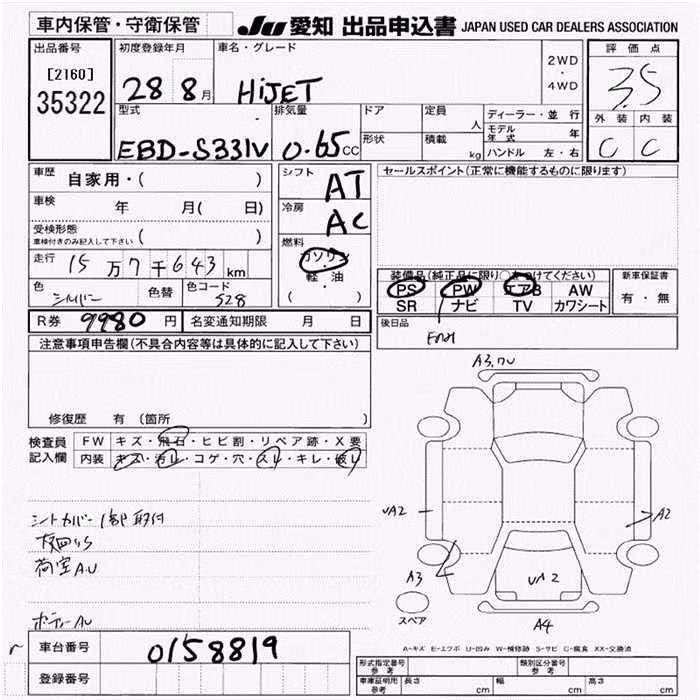 車内保管・守衛保管
JU 愛知 出品申込書 JAPAN USED CAR DEALERS ASSOCIATION
出品番号
[2160]
35322
初度登録年月
28 8月
車名・グレード
HiJET
2WD
・
4WD
評価点
3.5
外装 内装
C C
型式
EBD-S331V
排気量
0.65cc
ドア
形状
定員
人
積載
kg
ディーラー・並行
モデル年式 年
ハンドル 左・右
車歴 自家用・( )
車検 年 月( 日)
受検形態
車検付きのみ記入して下さい ( )
走行 15万7千643km
色 シルバー 色替 色コード 528
シフト AT
冷房 AC
燃料
ガソリン
・
軽・油
( )
セールスポイント(正常に機能するものに限ります)
装備品(純正品に限り○をつけてください)
PS PW エアB AW
SR ナビ TV カワシート
新車保証書
有・無
R券 9980円 名変通知期限 月 日
後日品
注意事項申告欄(不具合内容等は具体的に記入して下さい)
修復歴 有(箇所 )
検査員記入欄
FW キズ・飛石・ヒビ割・リペア跡・X要
内装 キズ・汚レ・コゲ・穴・スレ・キレ・破レ
シートカバー1部取付
荷室A.U
ボディーAU
A3.
UA2
A2
A3
UA2
A4
スペア
A-キズ E-エクボ U-凹み W-補修跡 S-サビ C-腐食 XX-交換済
車台番号 0158819
登録番号
形式指定番号 参考
類別区分番号 参考
車庫証明用 参考 長さ cm 幅 cm 高さ cm